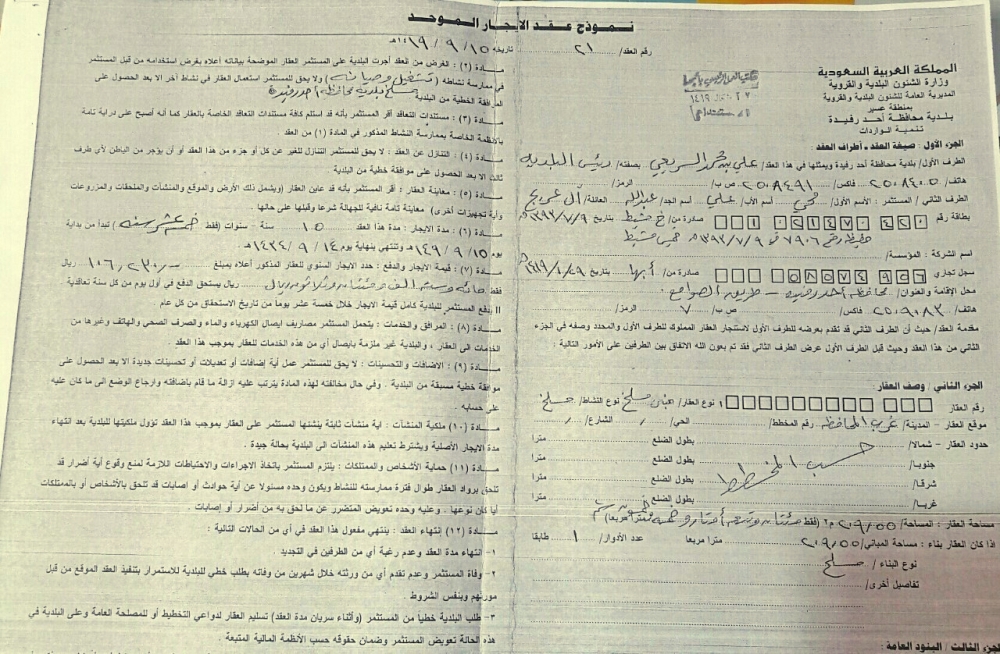 نموذج عقد الايجار الموحد
رقم العقد/ ٢١
تاريخه ١٥ / ٩ / ١٤١٩هـ
المملكة العربية السعودية
وزارة الشئون البلدية والقروية
المديرية العامة للشئون البلدية والقروية
بمنطقة عسير
بلدية محافظة أحد رفيدة
تنمية الواردات
الجزء الأول : صيغة العقد وأطراف العقد :
الطرف الأول/ بلدية محافظة أحد رفيدة ويمثلها في هذا العقد/ علي بن محمد السريعي بصفته/ رئيس البلدية
هاتف/ ٢٥٠٨٤٠٥ فاكس/ ٢٥٠٨٤٩١ ص ب/ الرمز/
الطرف الثاني / المستثمر : الاسم الأول/ اسم الأب/ علي اسم الجد/ عبدالله العائلة/
بطاقة رقم صادرة من/ خ مشيط بتاريخ ١٣٩٣/٧/٩
٧٩٠٦ في ١٣٩٣/٧/٩ خميس مشيط
اسم الشركة : المؤسسة/
سجل تجاري صادرة من/ أبها بتاريخ
محل الإقامة والعنوان/ محافظة أحد رفيدة - طريق الصوامع
هاتف/ ٢٥٠٩٠٨٣ فاكس/ ص ب/ ٧ الرمز/
مقدمة العقد/ حيث أن الطرف الثاني قد تقدم بعرضه للطرف الأول لاستئجار العقار المملوك للطرف الأول والمحدد وصفه في الجزء
الثاني من هذا العقد وحيث قبل الطرف الأول عرض الطرف الثاني فقد تم بعون الله الاتفاق بين الطرفين على الأمور التالية :
الجزء الثاني / وصف العقار :
رقم العقار ١ نوع العقار/ مسلخ نوع النشاط/ مسلخ
موقع العقار - المدينة/ غرب المحافظة رقم المخطط/ الحي/ الشارع/
حدود العقار - شمالا/ بطول الضلع مترا
جنوبا/ بطول الضلع مترا
شرقا/ بطول الضلع مترا
غربا/ بطول الضلع مترا
حسب المخطط
مساحة العقار : المساحة/ ٢٠٩/٥٥ م٢ (فقط
اذا كان العقار بناء : مساحة المباني/ ٢٠٩/٥٥ مترا مربعا عدد الأدوار/ ١ طابقا
نوع البناء / مسلح
تفاصيل أخرى/
الجزء الثالث / البنود العامة :
مــادة (٢) : الغرض من العقد أجرت البلدية على المستثمر العقار الموضحة بياناته أعلاه بغرض استخدامه من قبل المستثمر
في ممارسة نشاطه (تشغيل وصيانة) ولا يحق للمستثمر استعمال العقار في نشاط أخر الا بعد الحصول على
الموافقة الخطية من البلدية مسلخ بلدية محافظة أحد رفيدة
مــادة (٣) : مستندات التعاقد أقر المستثمر بأنه قد استلم كافة مستندات التعاقد الخاصة بالعقار كما أنه أصبح على دراية تامة
بالأنظمة الخاصة بممارسة النشاط المذكور في المادة (١) من العقد
مــادة (٤) : التنازل عن العقد : لا يحق للمستثمر التنازل للغير عن كل أو جزء من هذا العقد أو أن يؤجر من الباطن لأي طرف
ثالث الا بعد الحصول على موافقة خطية من البلدية
مــادة (٥) : معاينة العقار : أقر المستثمر بأنه قد عاين العقار (ويشمل ذلك الأرض والموقع والمنشآت والملحقات والمزروعات
وأية تجهيزات أخرى) معاينة تامة نافية للجهالة شرعا وقبلها على حالها .
مــادة (٦) : مدة الايجار : مدة هذا العقد ١٥ سنة - سنوات (فقط خمسة عشر سنة) تبدأ من بداية
يوم ١٥ / ٩ / ١٤١٩هـ وتنتهي بنهاية يوم ١٤ / ٩ / ١٤٣٤هـ
مــادة (٧) : قيمة الايجار والدفع : حدد الايجار السنوي للعقار المذكور أعلاه بمبلغ ١٠٦٫٢٣٠ ريال
فقط مائة وستة الف ومئتان وثلاثون ريال ريال يستحق الدفع في أول يوم من كل سنة تعاقدية
يدفع المستثمر للبلدية كامل قيمة الايجار خلال خمسة عشر يوماً من تاريخ الاستحقاق من كل عام
مــادة (٨) : المرافق والخدمات : يتحمل المستثمر مصاريف ايصال الكهرباء والماء والصرف الصحي والهاتف وغيرها من
الخدمات الى العقار ، والبلدية غير ملزمة بايصال أي من هذه الخدمات للعقار بموجب هذا العقد .
مــادة (٩) : الاضافات والتحسينات : لا يحق للمستثمر عمل أية إضافات أو تعديلات أو تحسينات جديدة الا بعد الحصول على
موافقة خطية مسبقة من البلدية . وفي حال مخالفته لهذه المادة يترتب عليه ازالة ما قام باضافته وارجاع الوضع الى ما كان عليه
على حسابه .
مــادة (١٠) : ملكية المنشآت : اية منشآت ثابتة ينشئها المستثمر على العقار بموجب هذا العقد تؤول ملكيتها للبلدية بعد انتهاء
مدة الايجار الأصلية ويشترط تعليم هذه المنشآت الى البلدية بحالة جيدة .
مــادة (١١) حماية الأشخاص والممتلكات : يلتزم المستثمر باتخاذ الاجراءات والاحتياطات اللازمة لمنع وقوع أية أضرار قد
تلحق برواد العقار طوال فترة ممارسته للنشاط ويكون وحده مسئولا عن أية حوادث أو اصابات قد تلحق بالأشخاص أو بالممتلكات
أيا كان نوعها . وعليه وحده تعويض المتضرر عن ما لحق به من أضرار أو إصابات .
مــادة (١٢) انتهاء العقد : ينتهي مفعول هذا العقد في أي من الحالات التالية :
١- انتهاء مدة العقد وعدم رغبة أي من الطرفين في التجديد .
٢- وفاة المستثمر وعدم تقدم أي من ورثته خلال شهرين من وفاته بطلب خطي للبلدية للاستمرار بتنفيذ العقد الموقع من قبل
مورثهم وبنفس الشروط
٣- طلب البلدية خطياً من المستثمر (وأثناء سريان مدة العقد) تسليم العقار لدواعي التخطيط أو للمصلحة العامة وعلى البلدية في
هذه الحالة تعويض المستثمر وضمان حقوقه حسب الأنظمة المالية المتبعة .